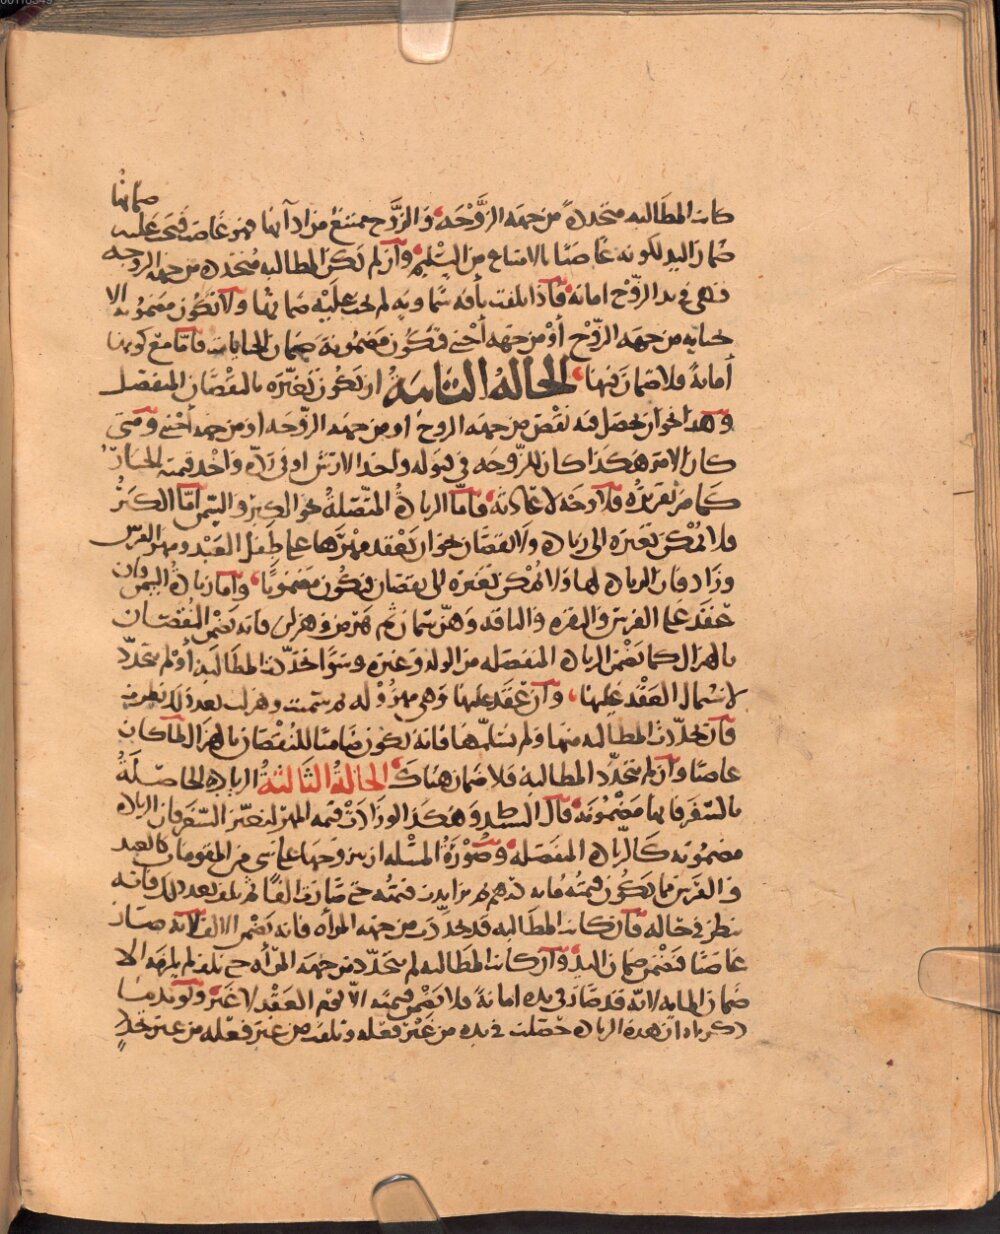 ضمانها
كانت المطالبه متجددة من جهه الزوجه والزوج ممتنع من ادآئها فهو غاصب فتجب عليه
ضمان اليد لكونه غاصبا بالامتناع من التسليم وان لم تكن المطالبه متجدده من جهه الزوجه
فهي في يد الزوج امانة فاذا تلفت بآفه سماويه لم يجب عليه ضمانها ولا تكون مضمونه الا
بجنايه من جهه الزوج أو من جهه أجنبي فتكون مضمونة ضمان الجنايات فاما مع كونها
أمانة فلا ضمان فيها الحالة الثانية ان تكون تغيره بالنقصان المنفصل
وهذا نحو ان يحصل فيه نقص من جهه الزوج أو من جهه الزوجه أو من جهه أجنبي ومتى
كان الامر هكذا كان للزوجه في قبوله واخذ الارش او في رده واخذ قيمته الخيار
كما مر تقريره فلا وجه لاعادته فاما الزياده المتصلة نحو الكبر والسمن أما الكبر
فلا يمكن تغيره الى زياده ولا نقصان نحو ان تعقد مهرها على طفل العبد ومهر الفرس
وزاد فان الزياده لها ولا يمكن تغيره الى نقصان فيكون مضمونا وأما زيادة السمن وان
عقد على الفرس والبقره والناقه وهن سمان ثم مرض وهزلن فانه يضمن النقصان
بالهزال كما يضمن الزياده المنفصله من الولد وغيره وسوآ تجددت المطالبه أو لم تتجدد
لاشتمال العقد عليها وان عقد عليها وهي مهزوله ثم سمنت وهزلت بعد ذلك نظرت
فان تجددت المطالبه منها ولم يسلمها فانه يكون ضامنا للنقصان بالهزال لما كان
غاصبا وان لم تتجدد المطالبه فلا ضمان هناك الحالة الثالثة الزياده الحاصلة
بالسعر فانها مضمونه قال السيد ط وهكذا لو زادت قيمه المهر لتغير السعر فان الزياده
مضمونه كالزياده المنفصله وصورة المسئله ان يتزوجها على شي من المقومات كالعبد
والفرس مما يكون قيمته مائه درهم ثم تزايدت قيمته حتى صارت الفا ثم تلف بعد ذلك فانه
ينظر في حاله فان كانت المطالبه قد تجددت من جهه المرأه فانه يضمن الالف لانه صار
غاصبا فيضمن ضمان اليد وان كانت المطالبه لم تتجدد من جهه المرأه حتى تلف لم يلزمه الا
ضمان المايه لانه قد صار في يده امانة فلا يضمن قيمته الا يوم العقد لا غير ويؤيد ما
ذكرناه ان هذه الزياده حصلت في يده من غير فعله وتلفت من غير فعله من غير تجدد